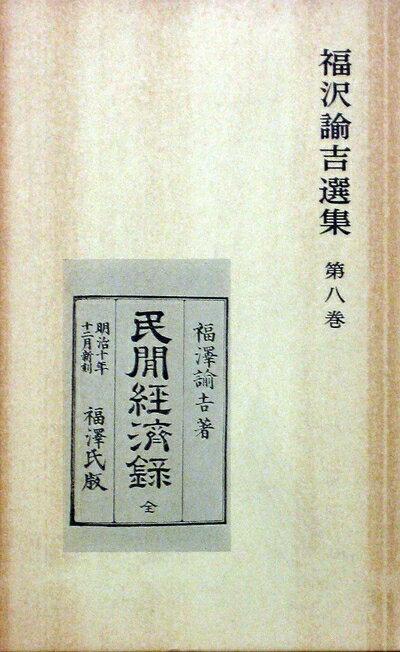 福沢諭吉選集
第八巻
福澤諭吉著
民間經濟録
全
明治十年
十二月新刻
福澤氏版